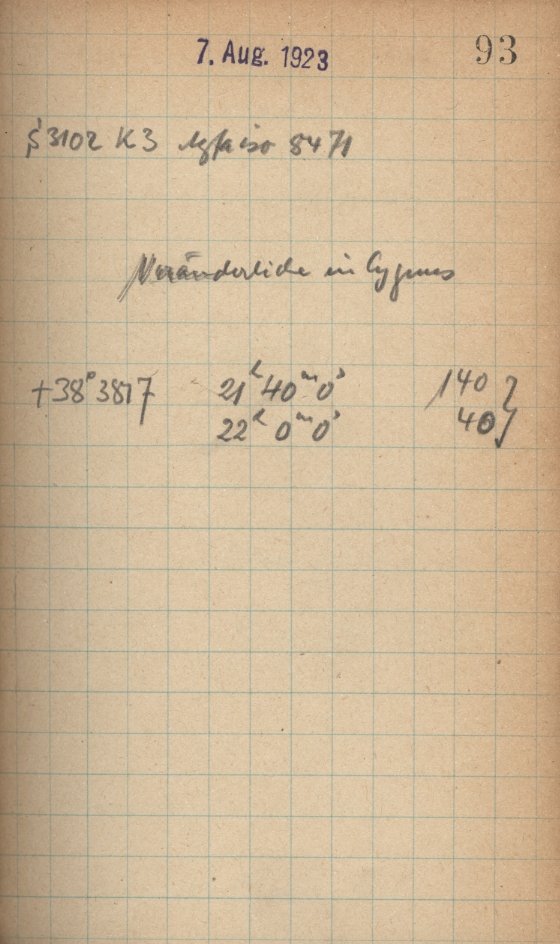 7. Aug. 1923
93
S 3102 K3 Agfa iso 8471
Veränderliche in Cygnus
+38° 3817 21ʰ 40ᵐ 0ˢ 140 }
22ʰ 0ᵐ 0ˢ 40 }